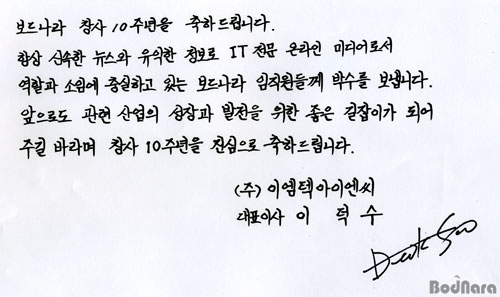 보드나라 창사 10주년을 축하드립니다.
항상 신속한 뉴스와 유익한 정보로 IT 전문 온라인 미디어로서
역할과 소임에 충실하고 있는 보드나라 임직원들께 박수를 보냅니다.
앞으로도 관련 산업의 성장과 발전을 위한 좋은 길잡이가 되어
주길 바라며 창사 10주년을 진심으로 축하드립니다.
(주) 이엠텍아이엔씨
대표이사 이 덕 수
BodNara